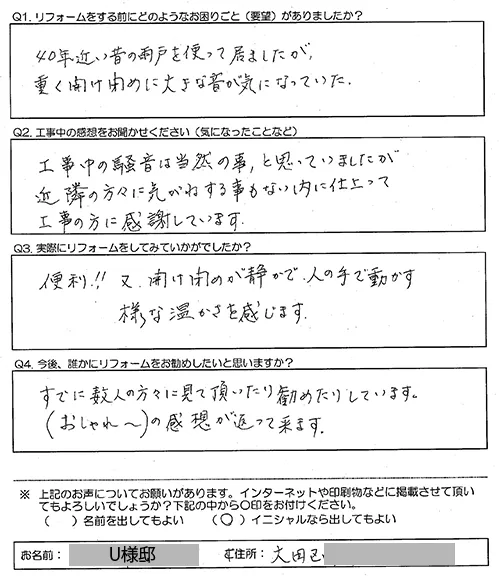 Q1. リフォームをする前にどのようなお困りごと（要望）がありましたか？
40年近い昔の雨戸を使って居ましたが、
重く開け閉めに大きな音が気になっていた.
Q2. 工事中の感想をお聞かせください（気になったことなど）
工事中の騒音は当然の事、と思っていましたが
近隣の方々に気がねする事もない内に仕上って
工事の方に感謝しています.
Q3. 実際にリフォームをしてみていかがでしたか？
便利!! 又、開け閉めが静かで、人の手で動かす
様な温かさを感じます.
Q4. 今後、誰かにリフォームをお勧めしたいと思いますか？
すでに数人の方々に見て頂いたり勧めたりしています。
(おしゃれ〜)の感想が返って来ます.
※ 上記のお声についてお願いがあります。インターネットや印刷物などに掲載させて頂い
てもよろしいでしょうか？下記の中から〇印をお付けください。
（　）名前を出してもよい　（〇）イニシャルなら出してもよい
お名前： U様邸 ご住所： 大田区